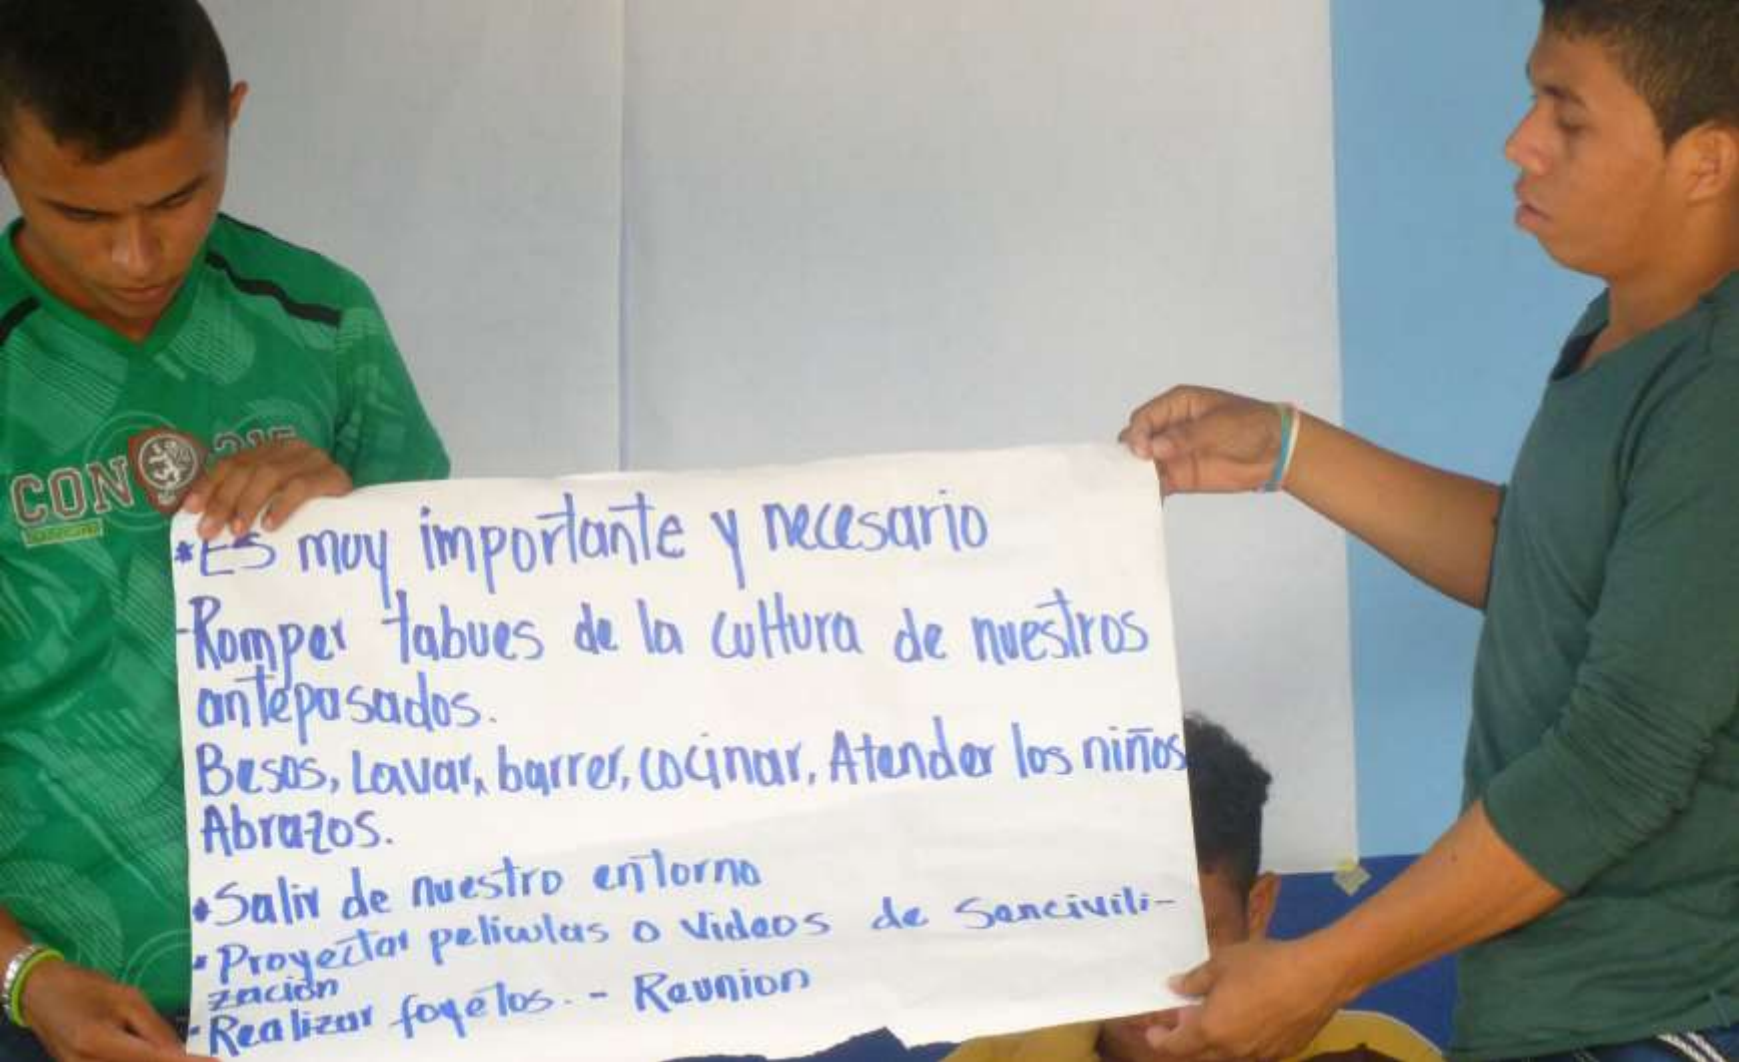 CON
*Es muy importante y necesario
-Romper tabues de la cultura de nuestros
antepasados.
Besos, Lavar, barrer, cocinar, Atender los niños
Abrazos.
*Salir de nuestro entorno
*Proyectar peliculas o Videos de Sencivili-
zación
-Realizar foyetos. - Reunion